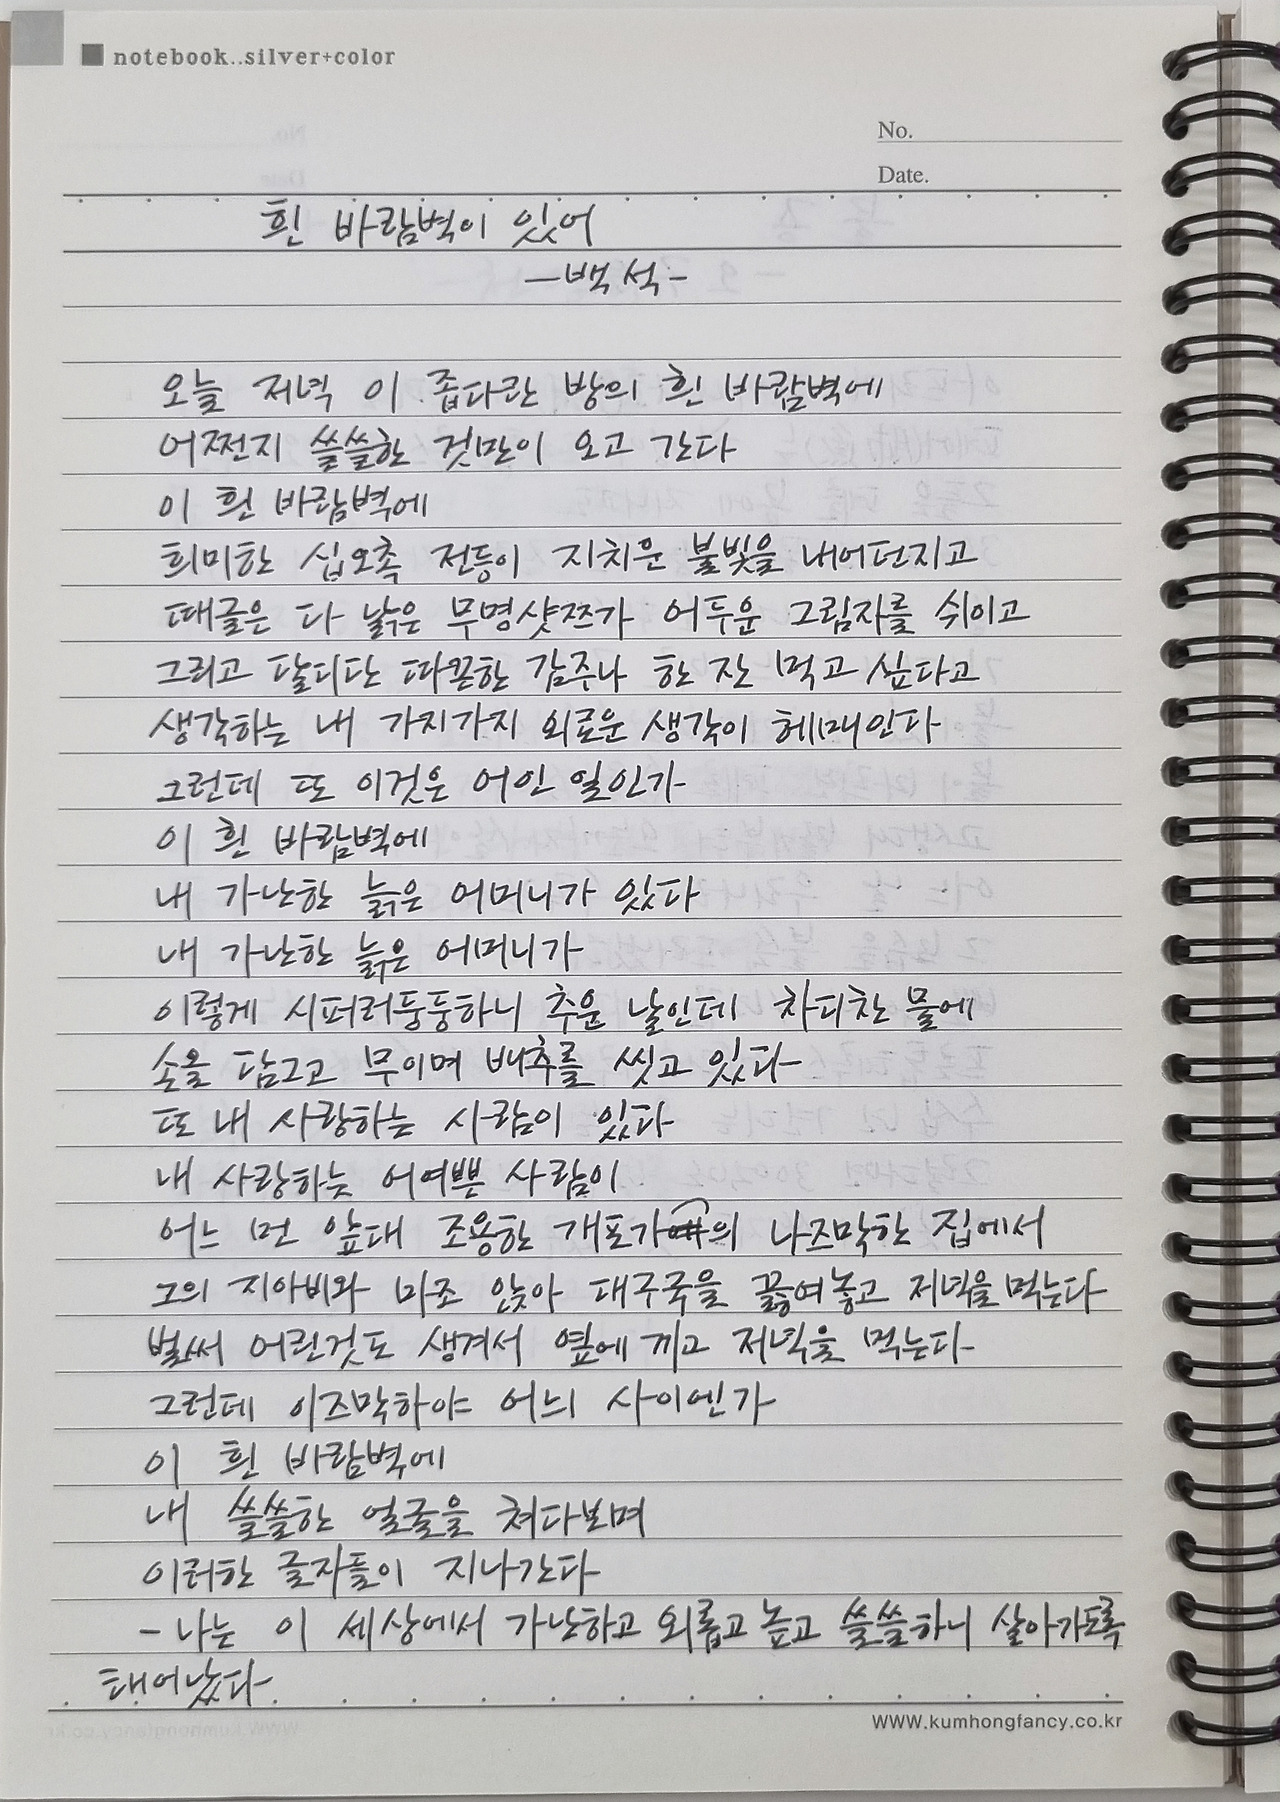 notebook..silver+color
No.
Date.
흰 바람벽이 있어
-백석-
오늘 저녁 이 좁다란 방의 흰 바람벽에
어쩐지 쓸쓸한 것만이 오고 간다
이 흰 바람벽에
희미한 십오촉 전등이 지치운 불빛을 내어던지고
때글은 다 낡은 무명샷쯔가 어두운 그림자를 쉬이고
그리고 달디단 따끈한 감주나 한 잔 먹고 싶다고
생각하는 내 가지가지 외로운 생각이 헤매인다
그런데 또 이것은 어인 일인가
이 흰 바람벽에
내 가난한 늙은 어머니가 있다
내 가난한 늙은 어머니가
이렇게 시퍼러둥둥하니 추운 날인데 차디찬 물에
손을 담그고 무이며 배추를 씻고 있다
또 내 사랑하는 사람이 있다
내 사랑하는 어여쁜 사람이
어느 먼 앞대 조용한 개포가의 나즈막한 집에서
그의 지아비와 마조 앉아 대구국을 끓여놓고 저녁을 먹는다
벌써 어린것도 생겨서 옆에 끼고 저녁을 먹는다
그런데 이즈막하야 어늬 사이엔가
이 흰 바람벽에
내 쓸쓸한 얼굴을 쳐다보며
이러한 글자들이 지나간다
-나는 이 세상에서 가난하고 외롭고 높고 쓸쓸하니 살아가도록
태어났다
WWW.kumhongfancy.co.kr